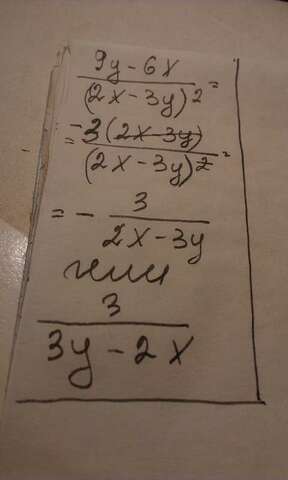 9y-6x
(2x-3y)2=
=-3(2x-3y)
(2x-3y)2=
=-3
2x-3y
или
3
3y-2x